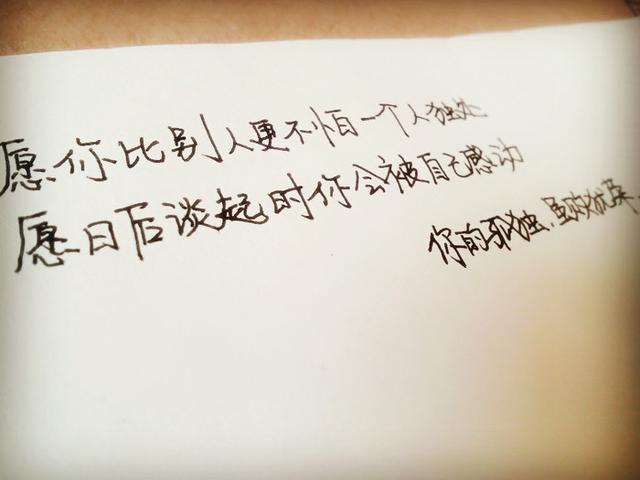 愿你比别人更不怕一个人独处
愿日后谈起时你会被自己感动
你的孤独,虽败犹荣.